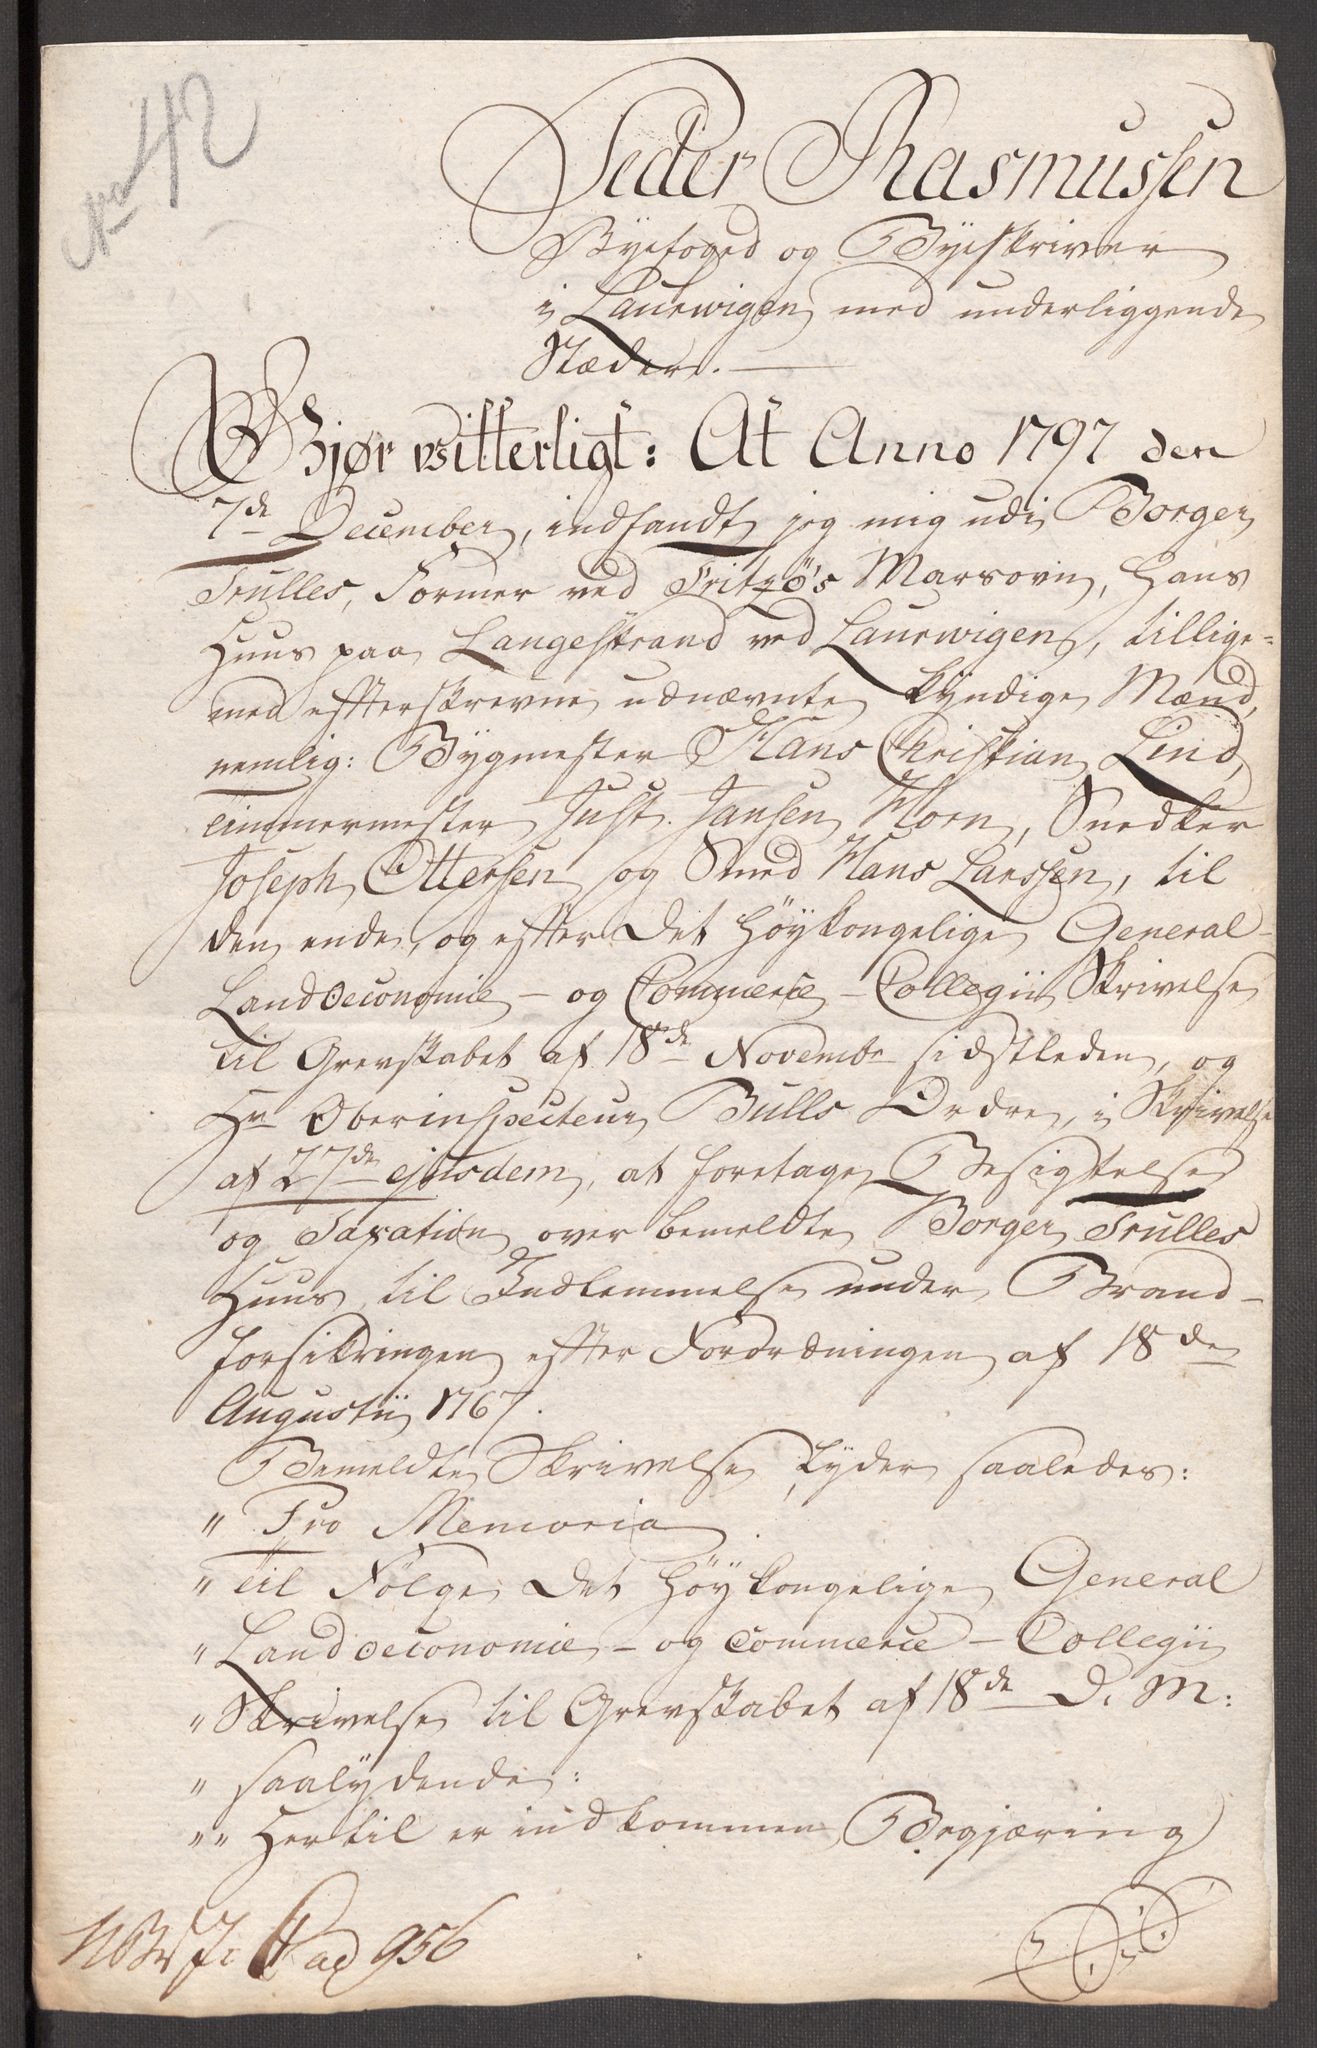 No 42
Peder Rasmussen
Byefoged og Byeskriver
i Laurwigen med underliggende
Stæder. —
Gjør vitterligt: At Anno 1797 den
7de December, indfandt jeg mig udi Borger
Trulles, Former ved Fritzö's Marsovn, Hans
Huus paa Langestrand ved Laurwigen, tillige=
med efterskrevne udnævnte kyndige Mænd,
nemlig: Bygmester Hans Christian Lind,
Timmermester Just Jansen Horn, Snedker
Joseph Ottersen og Smed Hans Larssen, til
den ende, og efter Det Höykongelige General-
Landoeconomie- og Commerce-Collegii Skrivelse
til Grevskabet af 18de Novembr sidstleden, og
Hr Oberinspecteur Bulls Ordre, i Skrivelse
af 27de ejusdem, at foretage Besigtelse
og Taxation over bemeldte Borger Trulles
Huus til Indlemmelse under Brand-
forsikringen efter Forordningen af 18de
Augustii 1767.
Bemeldte Skrivelse lyder saaledes:
" Pro Memoria
" Til Fölge Det Höykongelige General
" Landoeconomie- og Commerce-Collegii
" Skrivelse til Grevskabet af 18de D. M:
" saalydende:
" " Hertil er indkommen Begjæring
956